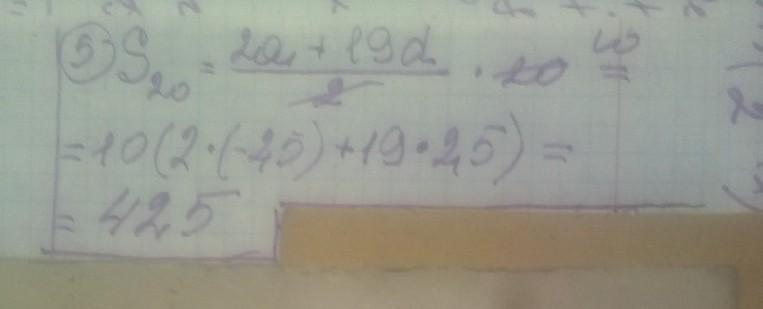 5) S₂₀ = (2a₁ + 19d)/2 · 20 10 =
= 10(2·(-25) + 19·2,5) =
= 425